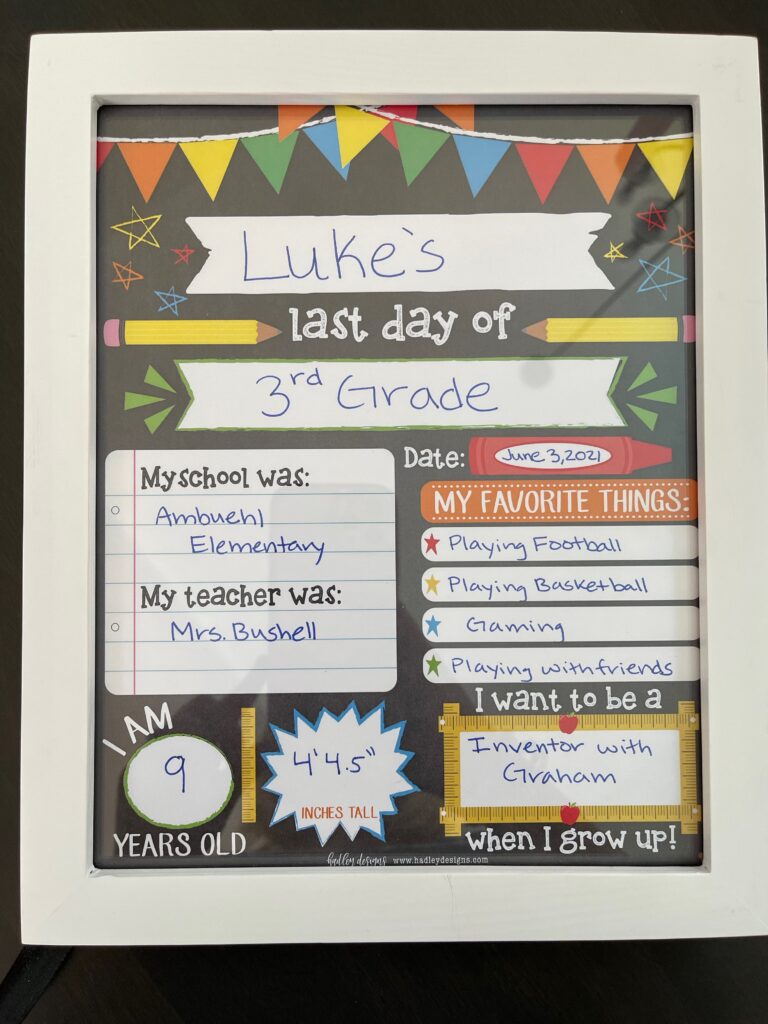 Luke's
last day of
3rd Grade
My school was:
Ambuehl
Elementary
My teacher was:
Mrs. Bushell
Date: June 3, 2021
MY FAVORITE THINGS:
Playing Football
Playing Basketball
Gaming
Playing with friends
I AM
9
YEARS OLD
4'4.5"
INCHES TALL
I want to be a
Inventor with
Graham
when I grow up!
hadley designs www.hadleydesigns.com